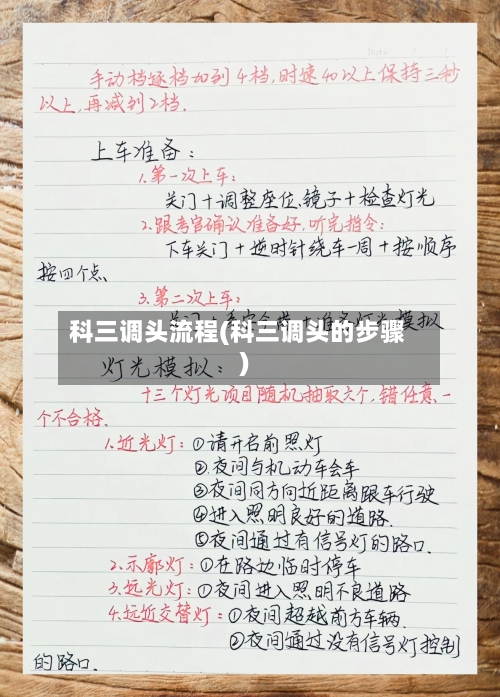 Date
手动档逐档加到4档,时速40以上保持三秒
以上,再减到2档.
上车准备:
1.第一次上车:
关门+调整座位、镜子+检查灯光
2.跟考官确认准备好,听完指令:
下车关门+逆时针绕车一周+按顺序
按四个点、
3.第二次上车:
模拟
科三调头流程(科三调头的步骤
)
灯光模拟:
十三个灯光项目随机抽取六个,错任意一
个不合格.
1.近光灯:①请开启前照灯
②夜间与机动车会车
③夜间同方向近距离跟车行驶
④进入照明良好的道路.
⑤夜间通过有信号灯的路口.
2.示廓灯:①在路边临时停车
3.远光灯:①夜间进入照明不良道路
4.远近交替灯:①夜间超越前方车辆.
②夜间通过没有信号灯控制
的路口.